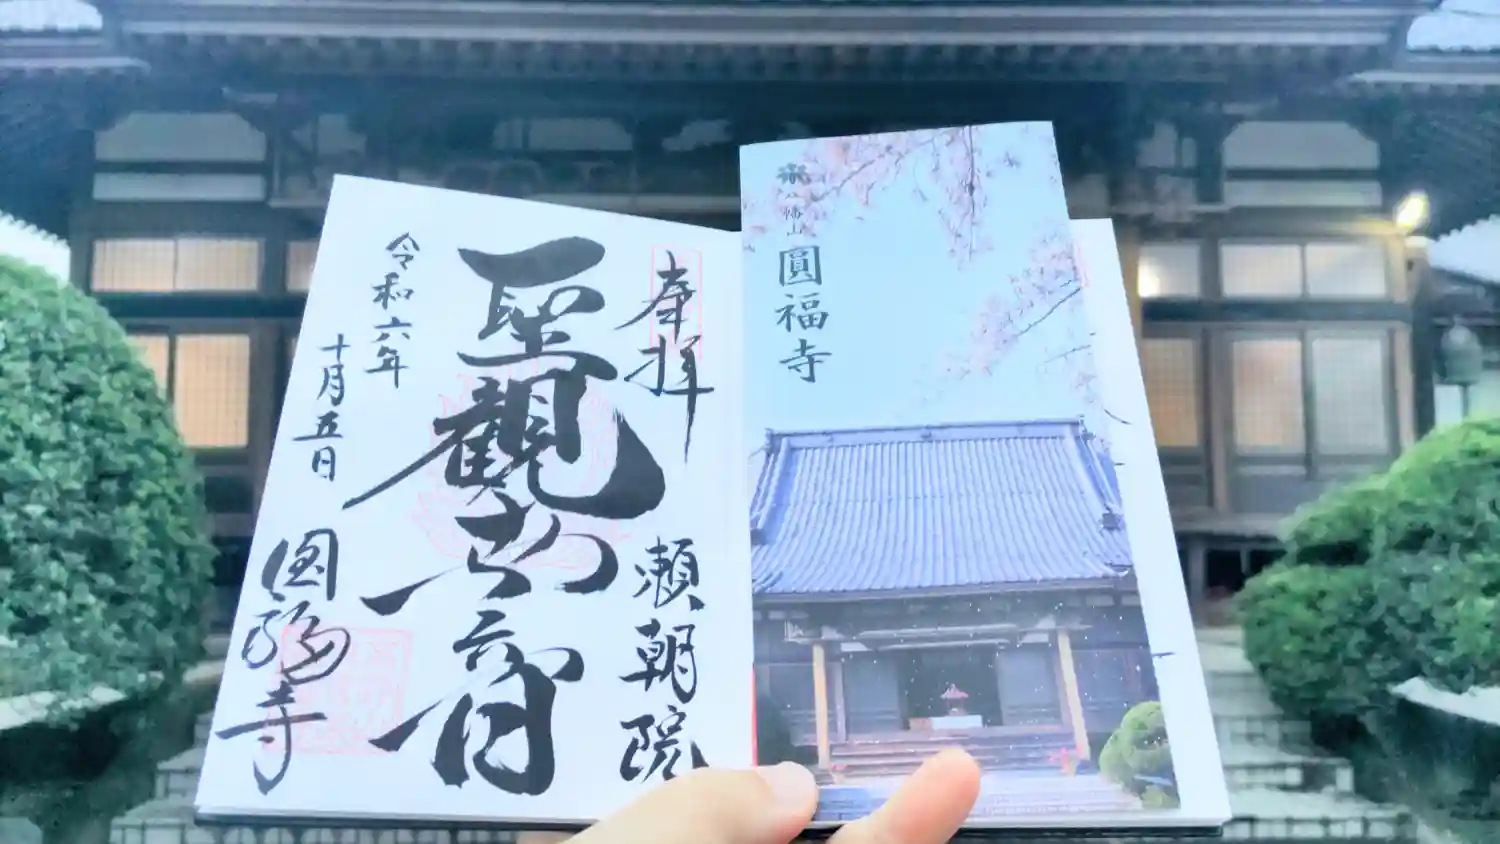 奉拝
瀬朝院
聖観世音
令和六年
十月五日
圓福寺
八幡山
圓福寺